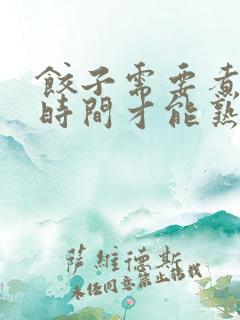 餃子需要煮
時間才能熟
薩維德斯
未经同意禁止转载